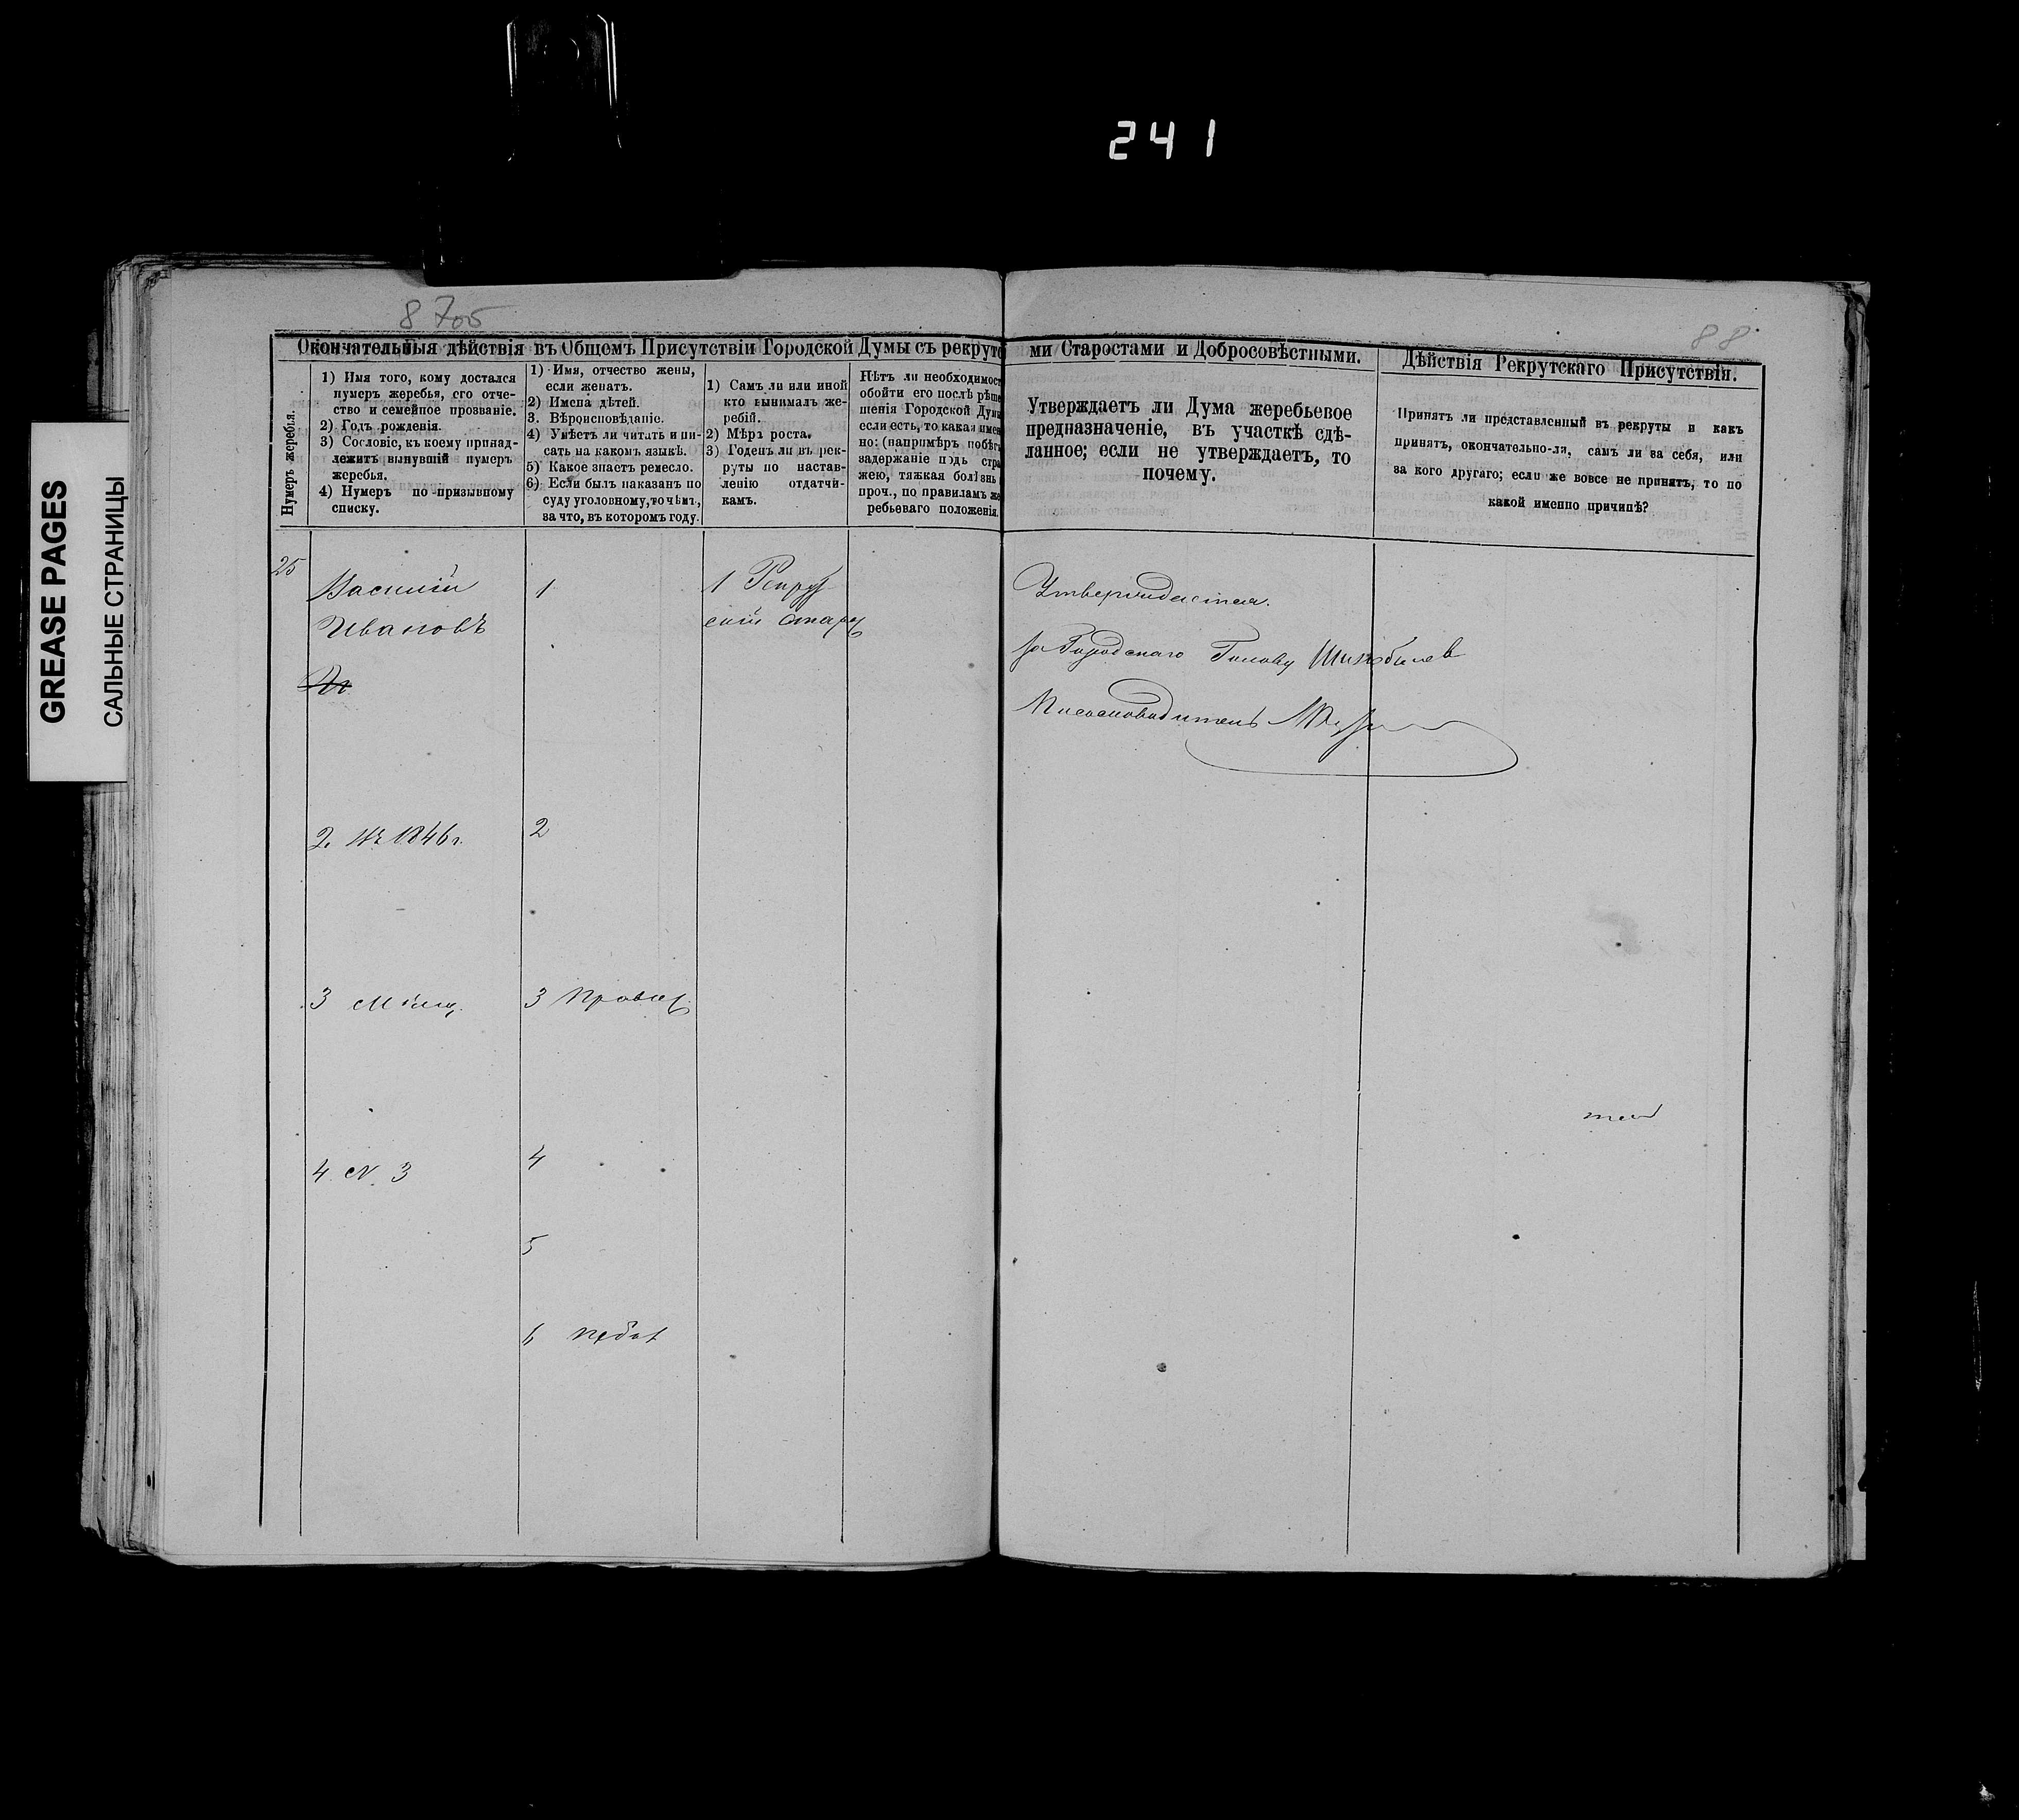 241
GREASE PAGES
САЛЬНЫЕ СТРАНИЦЫ
87об
88
Окончательныя дѣйствія въ Общемъ Присутствіи Городской Думы съ рекрутс
ми Старостами и Добросовѣстными.
Дѣйствія Рекрутскаго Присутствія.
Нумеръ жеребья.
1) Имя того, кому достался
нумеръ жеребья, его отче-
ство и семейное прозваніе.
2) Годъ рожденія.
3) Сословіе, къ коему принад-
лежитъ вынувшій нумеръ
жеребья.
4) Нумеръ по призывному
списку.
1) Имя, отчество жены,
если женатъ.
2) Имена дѣтей.
3. Вѣроисповѣданіе.
4) Умѣетъ ли читать и пи-
сать на какомъ языкѣ.
5) Какое знаетъ ремесло.
6) Если былъ наказанъ по
суду уголовному, то чѣмъ,
за что, въ которомъ году.
1) Самъ ли или иной
кто вынималъ же-
ребій.
2) Мѣра роста.
3) Годенъ ли въ рек-
руты по настав-
ленію отдатчи-
камъ.
Нѣтъ ли необходимост
обойти его послѣ рѣше
шенія Городской Думы
если есть, то какая имен
но: (напримѣръ побѣгъ
задержаніе подъ стра
жею, тяжкая болѣзнь
проч., по правиламъ же
ребьеваго положенія.
Утверждаетъ ли Дума жеребьевое
предназначеніе, въ участкѣ сдѣ-
ланное; если не утверждаетъ, то
почему.
Принятъ ли представленный въ рекруты и какъ
принятъ, окончательно-ли, самъ ли за себя, или
за кого другаго; если же вовсе не принятъ, то по
какой именно причинѣ?
25
Василій
Ивановъ
1
1 Рекрут
скій стар
Утверждается.
за Городскаго Голову
2. Въ 1846 г.
2
3 Мѣщ.
3 Правос
4 N. 3
4
5
6 Не был